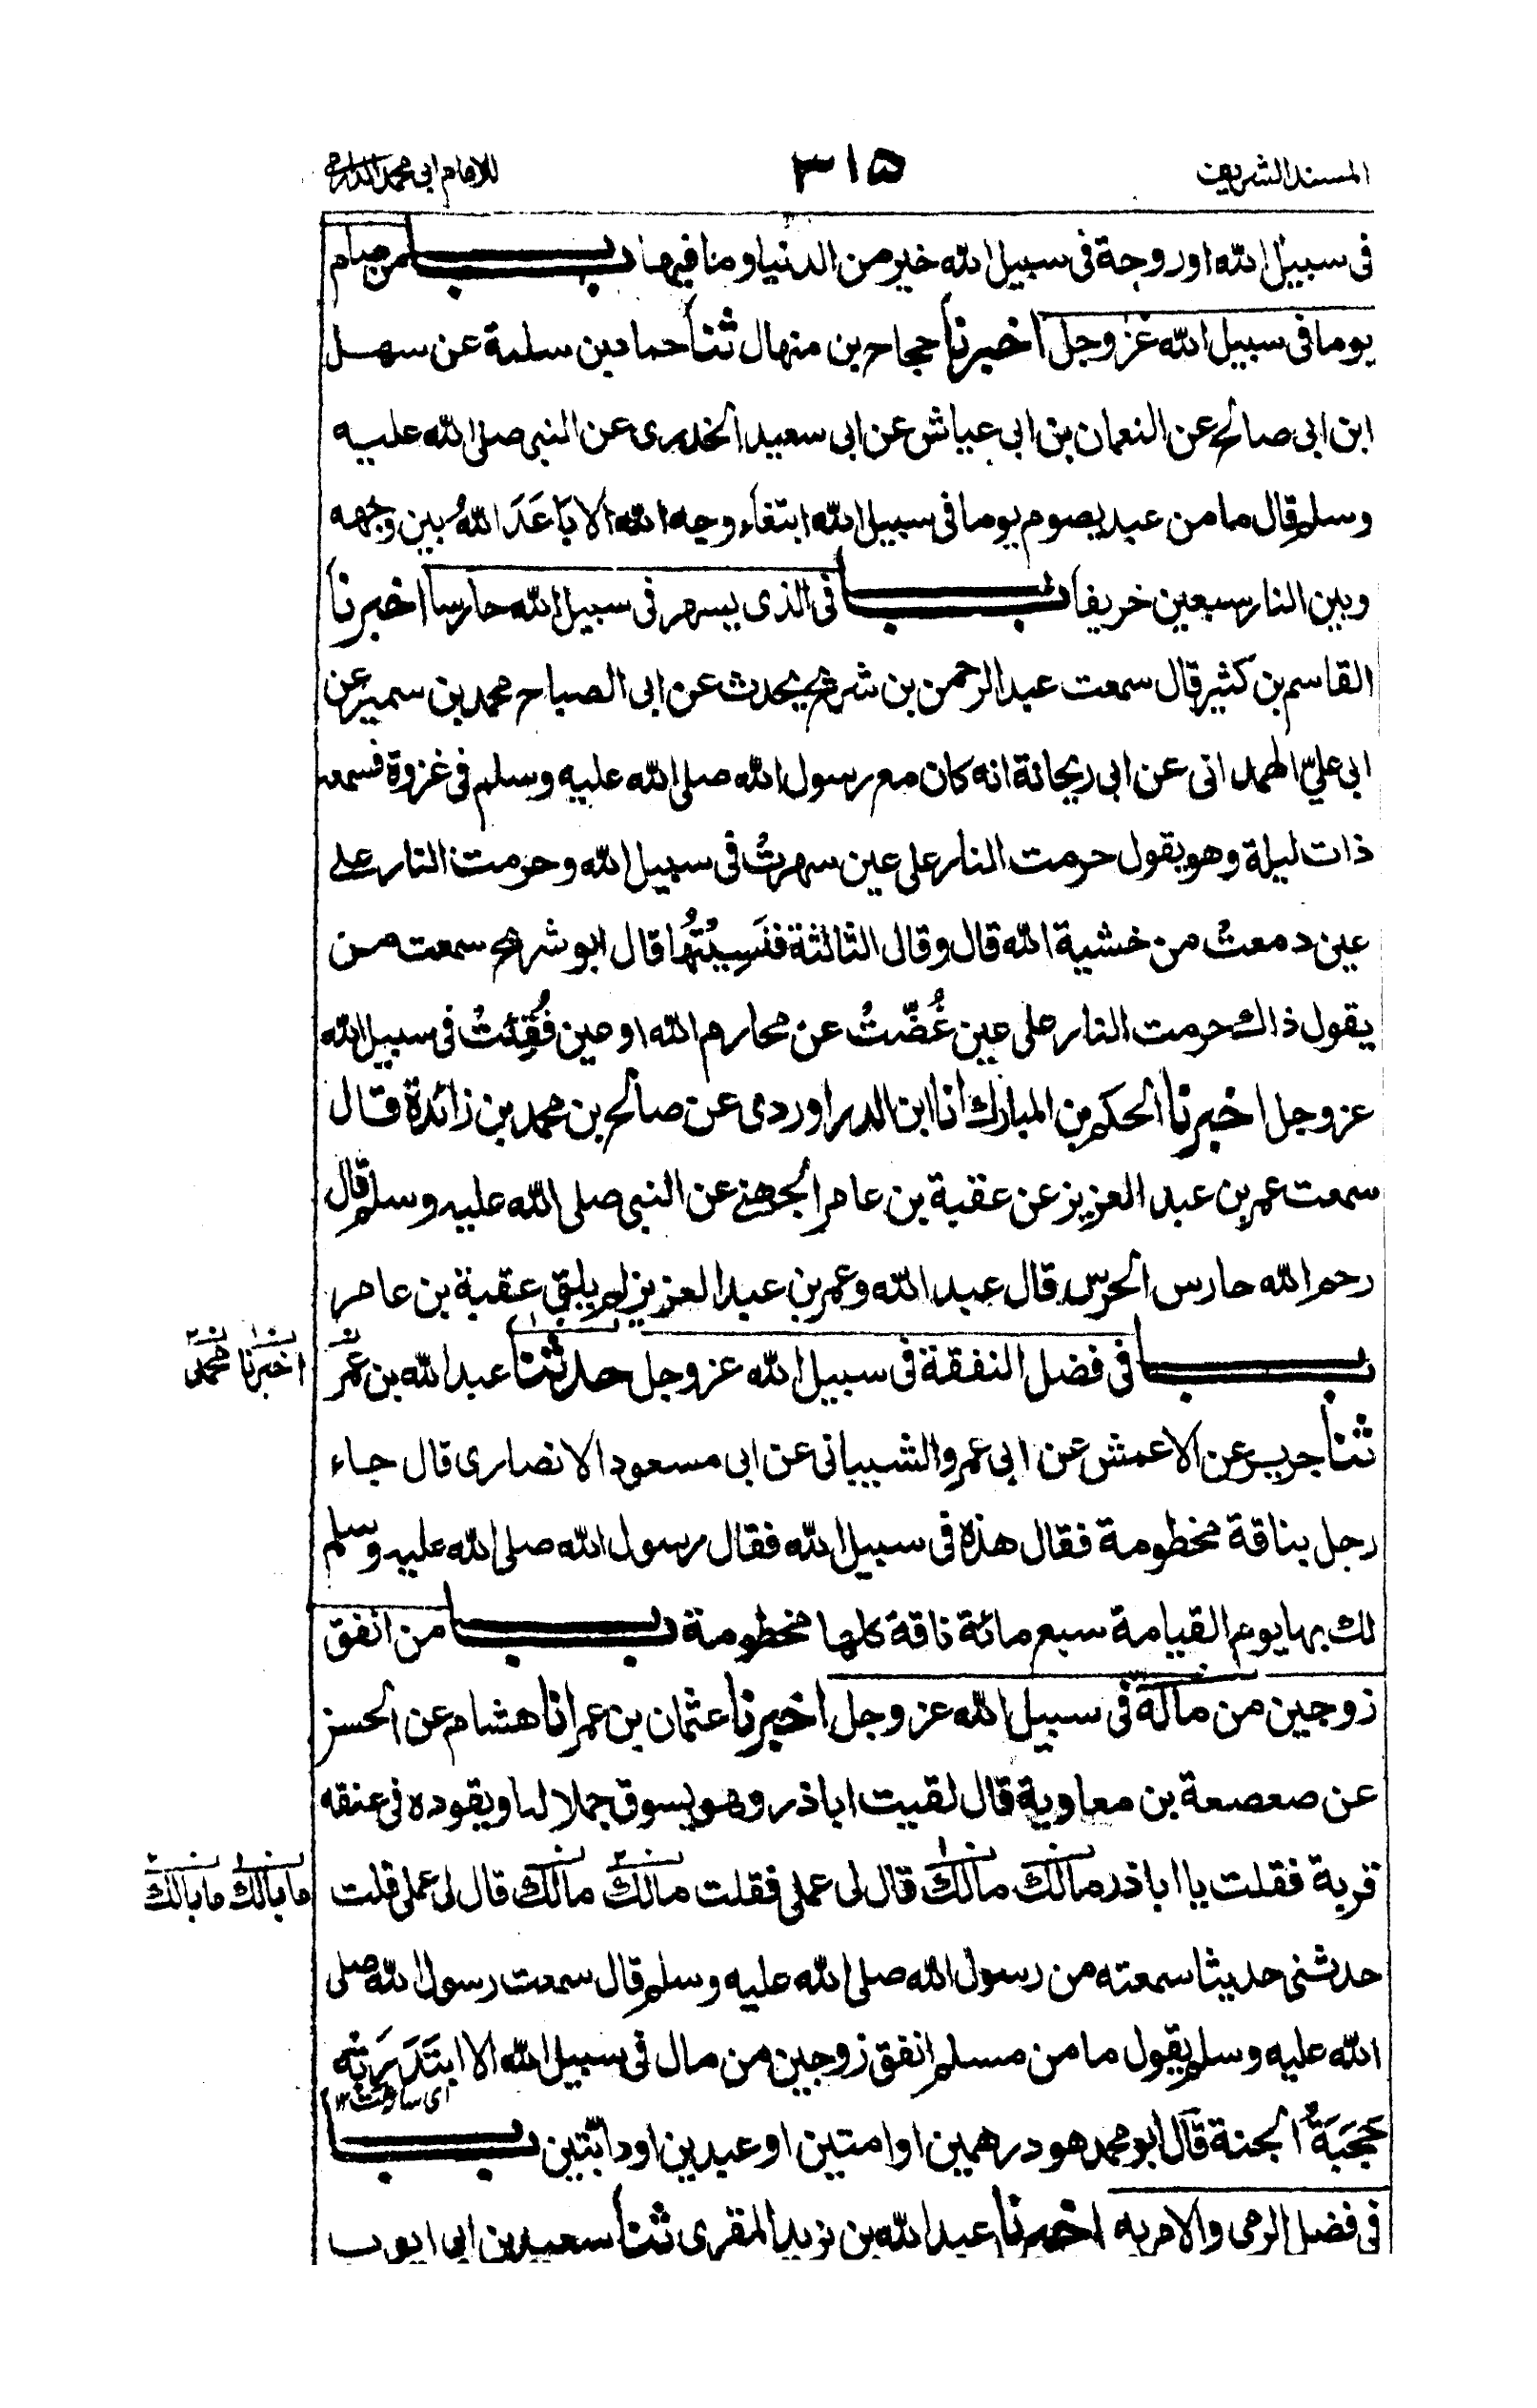 المسند الشريف ٣١٥ للامام ابى محمد الدارمى
فى سبيل الله او روحة فى سبيل الله خير من الدنيا وما فيها باب من صام
يوما فى سبيل الله عز وجل اخبرنا حجاج بن منهال ثنا حماد بن سلمة عن سهل
ابن ابى صالح عن النعمان بن ابى عياش عن ابى سعيد الخدرى عن النبى صلى الله عليه
وسلم قال ما من عبد يصوم يوما فى سبيل الله ابتغاء وجه الله الا بَاعَدَ اللهُ بين وجهه
وبين النار سبعين خريفا باب فى الذى يسهر فى سبيل الله حارسا اخبرنا
القاسم بن كثير قال سمعت عبد الرحمن بن شريح يحدث عن ابى الصباح محمد بن سمير عن
ابى علىّ الهمدانى عن ابى ريحانة انه كان مع رسول الله صلى الله عليه وسلم فى غزوة فسمعه
ذات ليلة وهو يقول حرمت النار على عين سهرتْ فى سبيل الله وحرمت النار على
عين دمعتْ من خشية الله قال وقال الثالثة فنَسِيْتُهَا قال ابو شريح سمعت من
يقول ذاك حرمت النار على عين غُضَّتْ عن محارم الله او عين فُقِئَتْ فى سبيل الله
عز وجل اخبرنا الحكم بن المبارك انا ابن الدراوردى عن صالح بن محمد بن زائدة قال
سمعت عمر بن عبد العزيز عن عقبة بن عامر الجهنى عن النبى صلى الله عليه وسلم قال
رحم الله حارس الحرس قال عبد الله وعمر بن عبد العزيز لم يلق عقبة بن عامر
باب فى فضل النفقة فى سبيل الله عز وجل حدثنا عبد الله بن عمر
اخبرنا محمد
ثنا جرير عن الاعمش عن ابى عمرو الشيبانى عن ابى مسعود الانصارى قال جاء
رجل بناقة مخطومة فقال هذه فى سبيل الله فقال رسول الله صلى الله عليه وسلم
لك بها يوم القيامة سبع مائة ناقة كلها مخطومة باب من انفق
زوجين من ماله فى سبيل الله عز وجل اخبرنا عثمان بن عمر انا هشام عن الحسن
عن صعصعة بن معاوية قال لقيت اباذر وهو يسوق جملا له او يقوده فى عنقه
قربة فقلت يا اباذر مالك مالك قال لى عملى فقلت مالك مالك قال لى عملى قلت
ما بالك ما بالك
حدثنى حديثا سمعته من رسول الله صلى الله عليه وسلم قال سمعت رسول الله صلى
الله عليه وسلم يقول ما من مسلم انفق زوجين من مال فى سبيل الله الا ابتَدَرَتْه
اى سارعت ١٢
حَجَبَةُ الجنة قال ابو محمد هو درهمين او امتين او عبدين او دابّتين باب
فى فضل الرمى والامر به اخبرنا عبد الله بن يزيد المقرى ثنا سعيد بن ابى ايوب